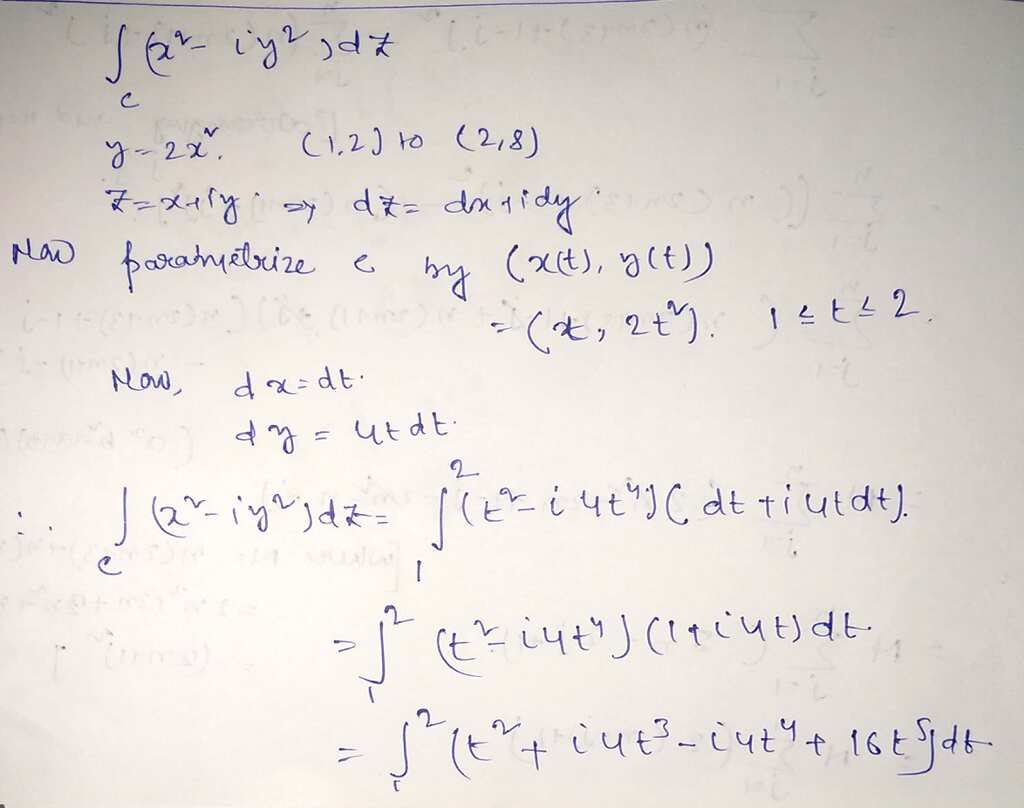 ∫_C (x² - iy²) dz
y = 2x². (1,2) to (2,8)
z = x+iy ⇒ dz = dx+idy
Now parametrize C by (x(t), y(t))
= (t, 2t²). 1 ≤ t ≤ 2.
Now, dx = dt.
dy = 4t dt.
∴ ∫_C (x² - iy²) dz = ∫_1^2 (t² - i4t⁴)(dt + i4tdt).
= ∫_1^2 (t² - i4t⁴)(1+i4t) dt
= ∫_1^2 (t² + i4t³ - i4t⁴ + 16t⁵) dt